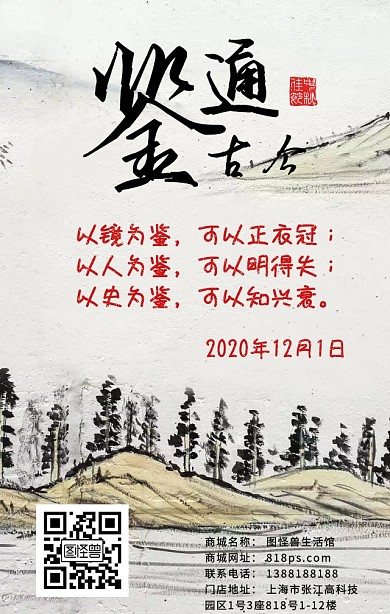 鉴通
古今
中秋佳节
以镜为鉴，可以正衣冠；
以人为鉴，可以明得失；
以史为鉴，可以知兴衰。
2020年12月1日
图怪兽
商城名称： 图怪兽生活馆
商城网址： 818ps.com
联系电话： 1388188188
门店地址： 上海市张江高科技
园区1号3座818号1-12楼